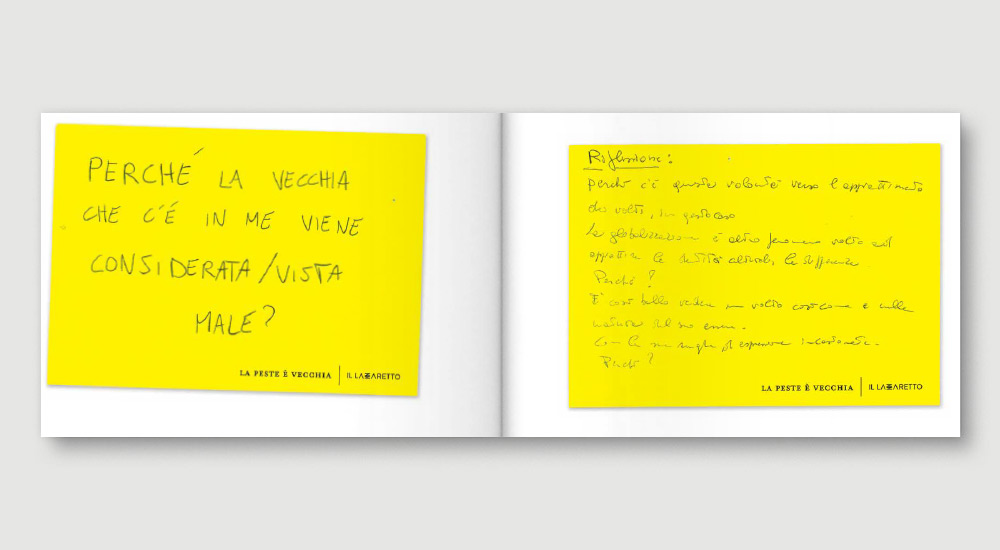 PERCHÉ LA VECCHIA
CHE C'É IN ME VIENE
CONSIDERATA/VISTA
MALE?
LA PESTE È VECCHIA | IL LAZZARETTO
Riflessione:
perché c'è questa volontà verso l'appiattimento
dei volti, in questo caso
La globalizzazione è altro fenomeno volto ad
appiattire le identità culturali, le differenze
Perché?
E' così bello vedere un volto così come è nella
natura del suo essere.
Con le sue rughe d'espressione
Perché?
LA PESTE È VECCHIA | IL LAZZARETTO